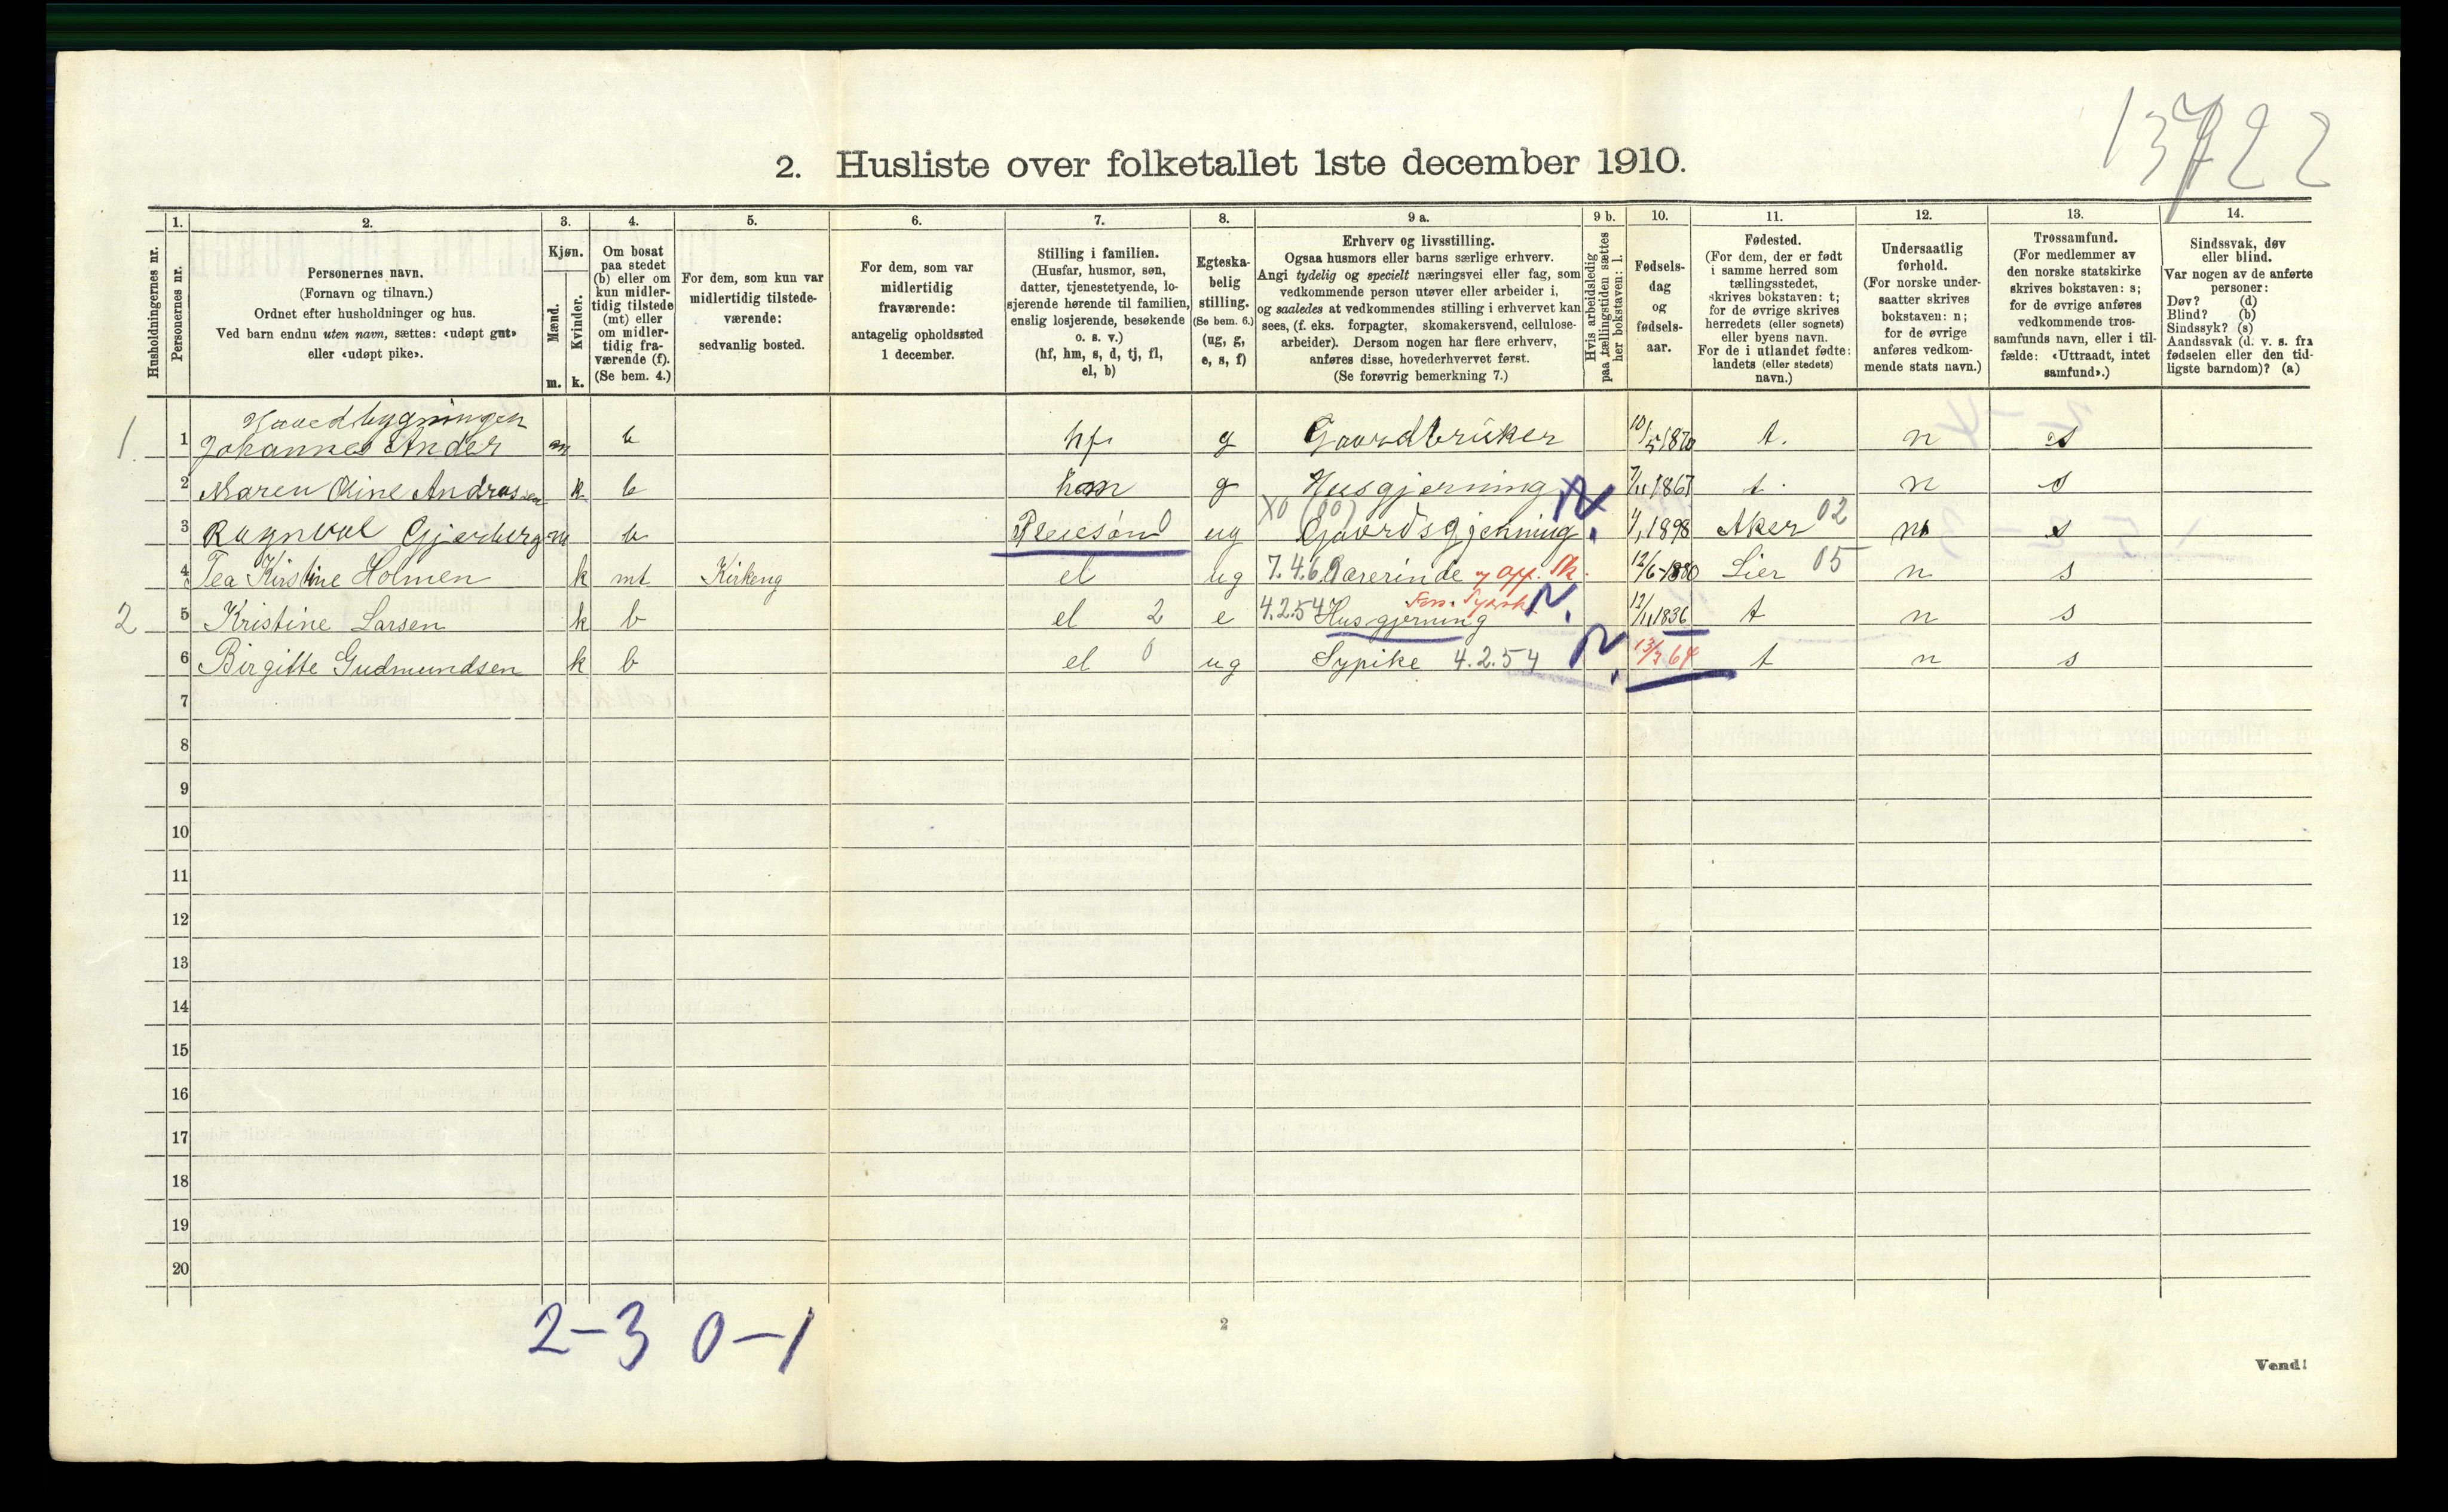 13722
2. Husliste over folketallet 1ste december 1910.
Husholdningernes nr.
1.
Personernes nr.
2.
Personernes navn.
(Fornavn og tilnavn.)
Ordnet efter husholdninger og hus.
Ved barn endnu uten navn, sættes: «udøpt gut»
eller «udøpt pike».
3.
Kjøn.
Mænd.
Kvinder.
m. k.
4.
Om bosat
paa stedet
(b) eller om
kun midler-
tidig tilstede
(mt) eller
om midler-
tidig fra-
værende (f).
(Se bem. 4.)
5.
For dem, som kun var
midlertidig tilstede-
værende:
sedvanlig bosted.
6.
For dem, som var
midlertidig
fraværende:
antagelig opholdssted
1 december.
7.
Stilling i familien.
(Husfar, husmor, søn,
datter, tjenestetyende, lo-
sjerende hørende til familien,
enslig losjerende, besøkende
o. s. v.)
(hf, hm, s, d, tj, fl,
el, b)
8.
Egteska-
belig
stilling.
(Se bem. 6.)
(ug, g,
e, s, f)
9 a.
Erhverv og livsstilling.
Ogsaa husmors eller barns særlige erhverv.
Angi tydelig og specielt næringsvei eller fag, som
vedkommende person utøver eller arbeider i,
og saaledes at vedkommendes stilling i erhvervet kan
sees, (f. eks. forpagter, skomakersvend, cellulose-
arbeider). Dersom nogen har flere erhverv,
anføres disse, hovederhvervet først.
(Se forøvrig bemerkning 7.)
9 b.
Hvis arbeidsledig
paa tællingstiden sættes
her bokstaven: l.
10.
Fødsels-
dag
og
fødsels-
aar.
11.
Fødested.
(For dem, der er født
i samme herred som
tællingsstedet,
skrives bokstaven: t;
for de øvrige skrives
herredets (eller sognets)
eller byens navn.
For de i utlandet fødte:
landets (eller stedets)
navn.)
12.
Undersaatlig
forhold.
(For norske under-
saatter skrives
bokstaven: n;
for de øvrige
anføres vedkom-
mende stats navn.)
13.
Trossamfund.
(For medlemmer av
den norske statskirke
skrives bokstaven: s;
for de øvrige anføres
vedkommende tros-
samfunds navn, eller i til-
fælde: «Uttraadt, intet
samfund».)
14.
Sindssvak, døv
eller blind.
Var nogen av de anførte
personer:
Døv? (d)
Blind? (b)
Sindssyk? (s)
Aandssvak (d. v. s. fra
fødselen eller den tid-
ligste barndom)? (a)
Hovedbygningen
1. 1 Johannes Ander m b hf g Gaardbruker 10/5 1870 t. n s
2 Maren Oline Andrassen k b hm g Husgjerning N 7/11 1867 t. n s
X0 (00)
3 Ragnval Gjerberg m b Pleiesøn 0 ug Gaardsgjerning 1/1 1898 Aker 02 n s
4 Tea Kirstine Holmen k mt Kirkeng el ug 7.4.6 Lærerinde 12/6-1880 Lier 05 n s
2 5 Kristine Larsen k b el 2 e 4.2.54 Husgjerning N. 12/11 1836 t n s
6 Birgitte Gudmundsen k b el 0 ug Sypike 4.2.54 N. 13/7 64 t n s
7
8
9
10
11
12
13
14
15
16
17
18
19
20
2-3 0-1
2
Vend!